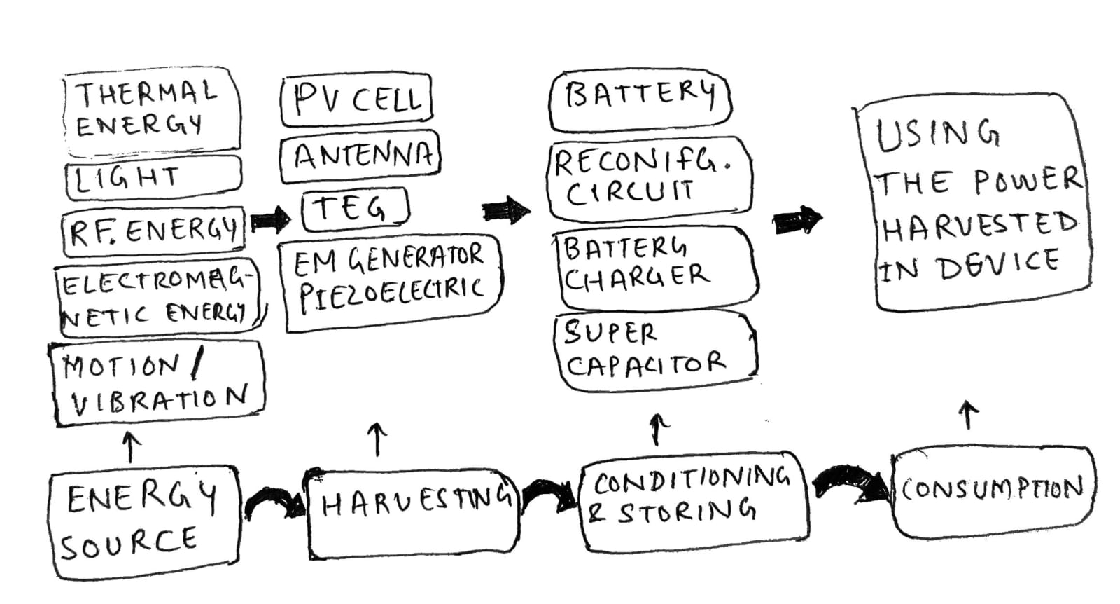 THERMAL
ENERGY
LIGHT
RF. ENERGY
ELECTROMAG-
NETIC ENERGY
MOTION/
VIBRATION
PV CELL
ANTENNA
TEG
EM GENERATOR
PIEZOELECTRIC
BATTERY
RECONIFG.
CIRCUIT
BATTERG
CHARGER
SUPER
CAPACITOR
USING
THE POWER
HARVESTED
IN DEVICE
ENERGY
SOURCE
HARVESTING
CONDITIONING
& STORING
CONSUMPTION